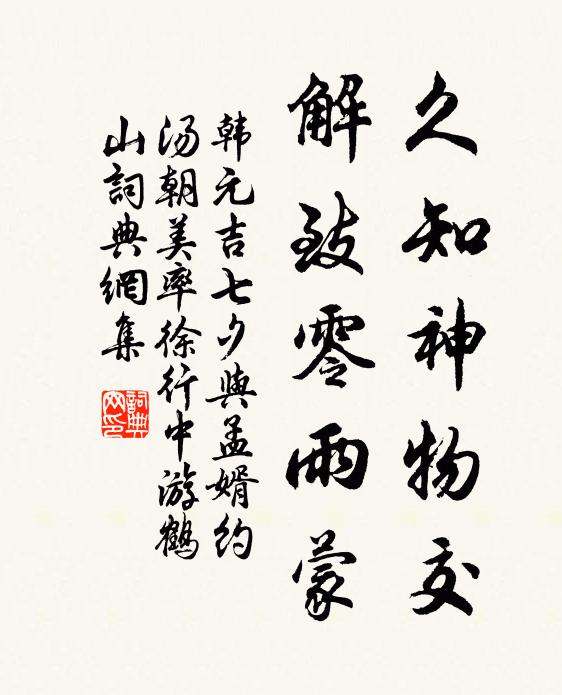 久知神物交
解致零雨蒙
韩元吉七夕與孟婿约
汤朝美率徐行中游鶴
山詞典網集
詞典
网印